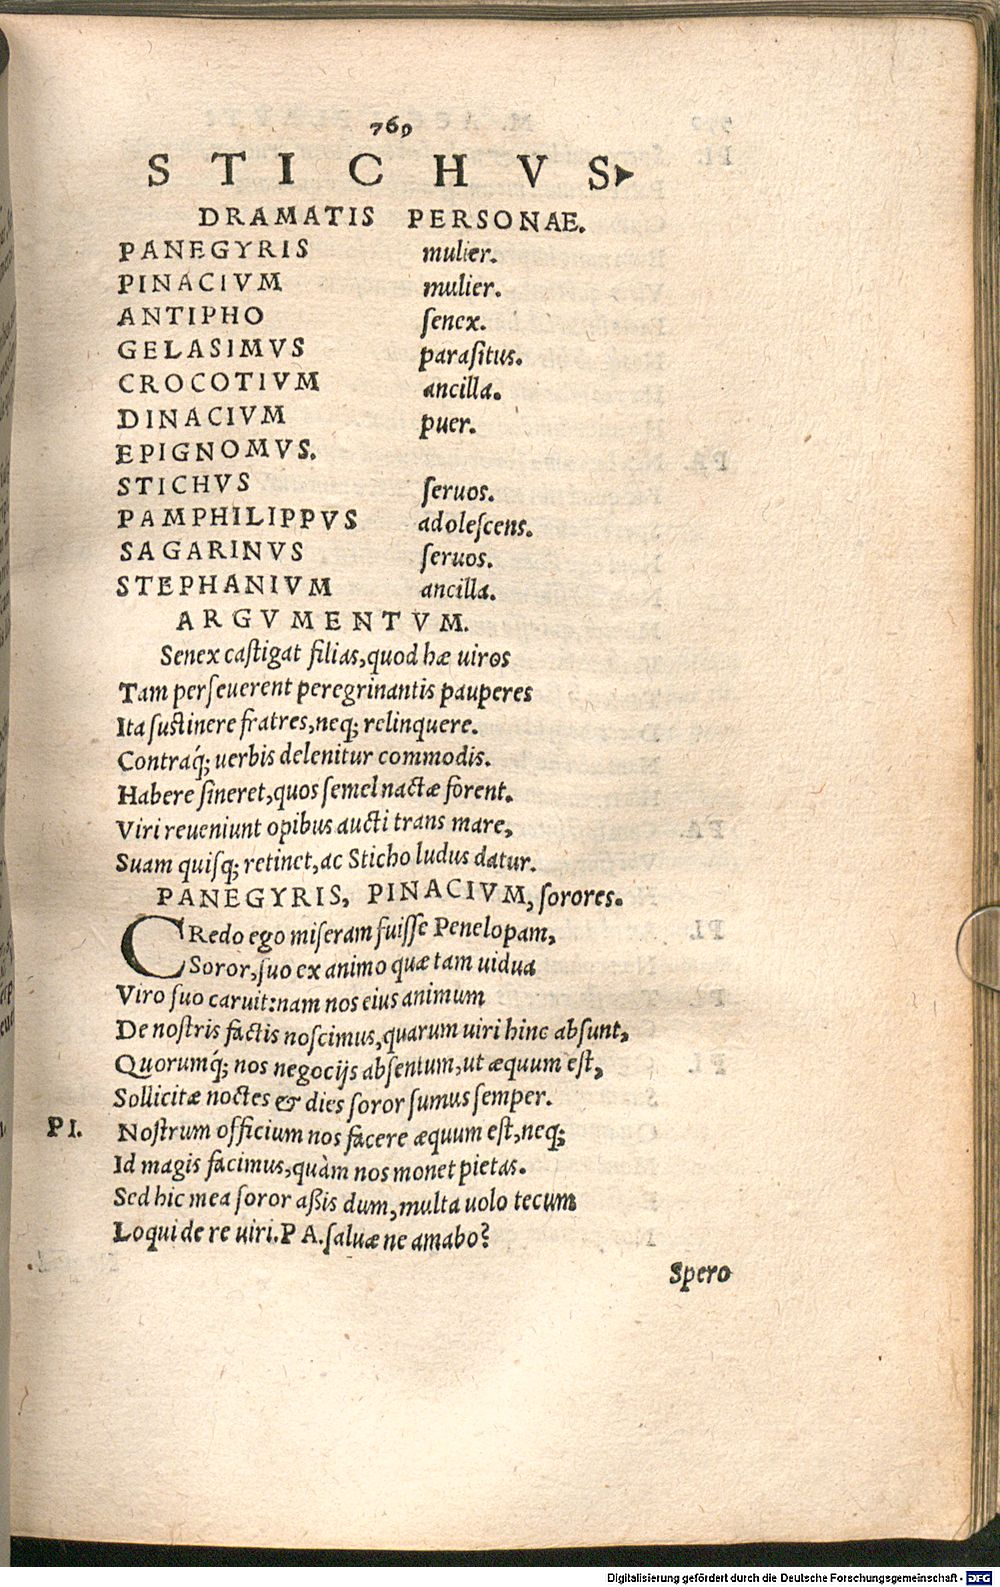 769
STICHVS
DRAMATIS PERSONAE.
PANEGYRIS mulier.
PINACIVM mulier.
ANTIPHO senex.
GELASIMVS parasitus.
CROCOTIVM ancilla.
DINACIVM puer.
EPIGNOMVS.
STICHVS seruos.
PAMPHILIPPVS adolescens.
SAGARINVS seruos.
STEPHANIVM ancilla.
ARGVMENTVM.
Senex castigat filias, quod hæ uiros
Tam perseuerent peregrinantis pauperes
Ita sustinere fratres, neq; relinquere.
Contraq́; uerbis delenitur commodis.
Habere sineret, quos semel nactæ forent.
Viri reueniunt opibus aucti trans mare,
Suam quisq; retinet, ac Sticho ludus datur.
PANEGYRIS, PINACIVM, sorores.
CRedo ego miseram fuisse Penelopam,
Soror, suo ex animo quæ tam uidua
Viro suo caruit: nam nos eius animum
De nostris factis noscimus, quarum uiri hinc absunt,
Quorumq́; nos negocijs absentum, ut æquum est,
Sollicitæ noctes & dies soror sumus semper.
PI. Nostrum officium nos facere æquum est, neq;
Id magis facimus, quàm nos monet pietas.
Sed hic mea soror aßis dum, multa uolo tecum
Loqui de re uiri. PA. saluæ ne amabo?
Spero
Digitalisierung gefördert durch die Deutsche Forschungsgemeinschaft - DFG